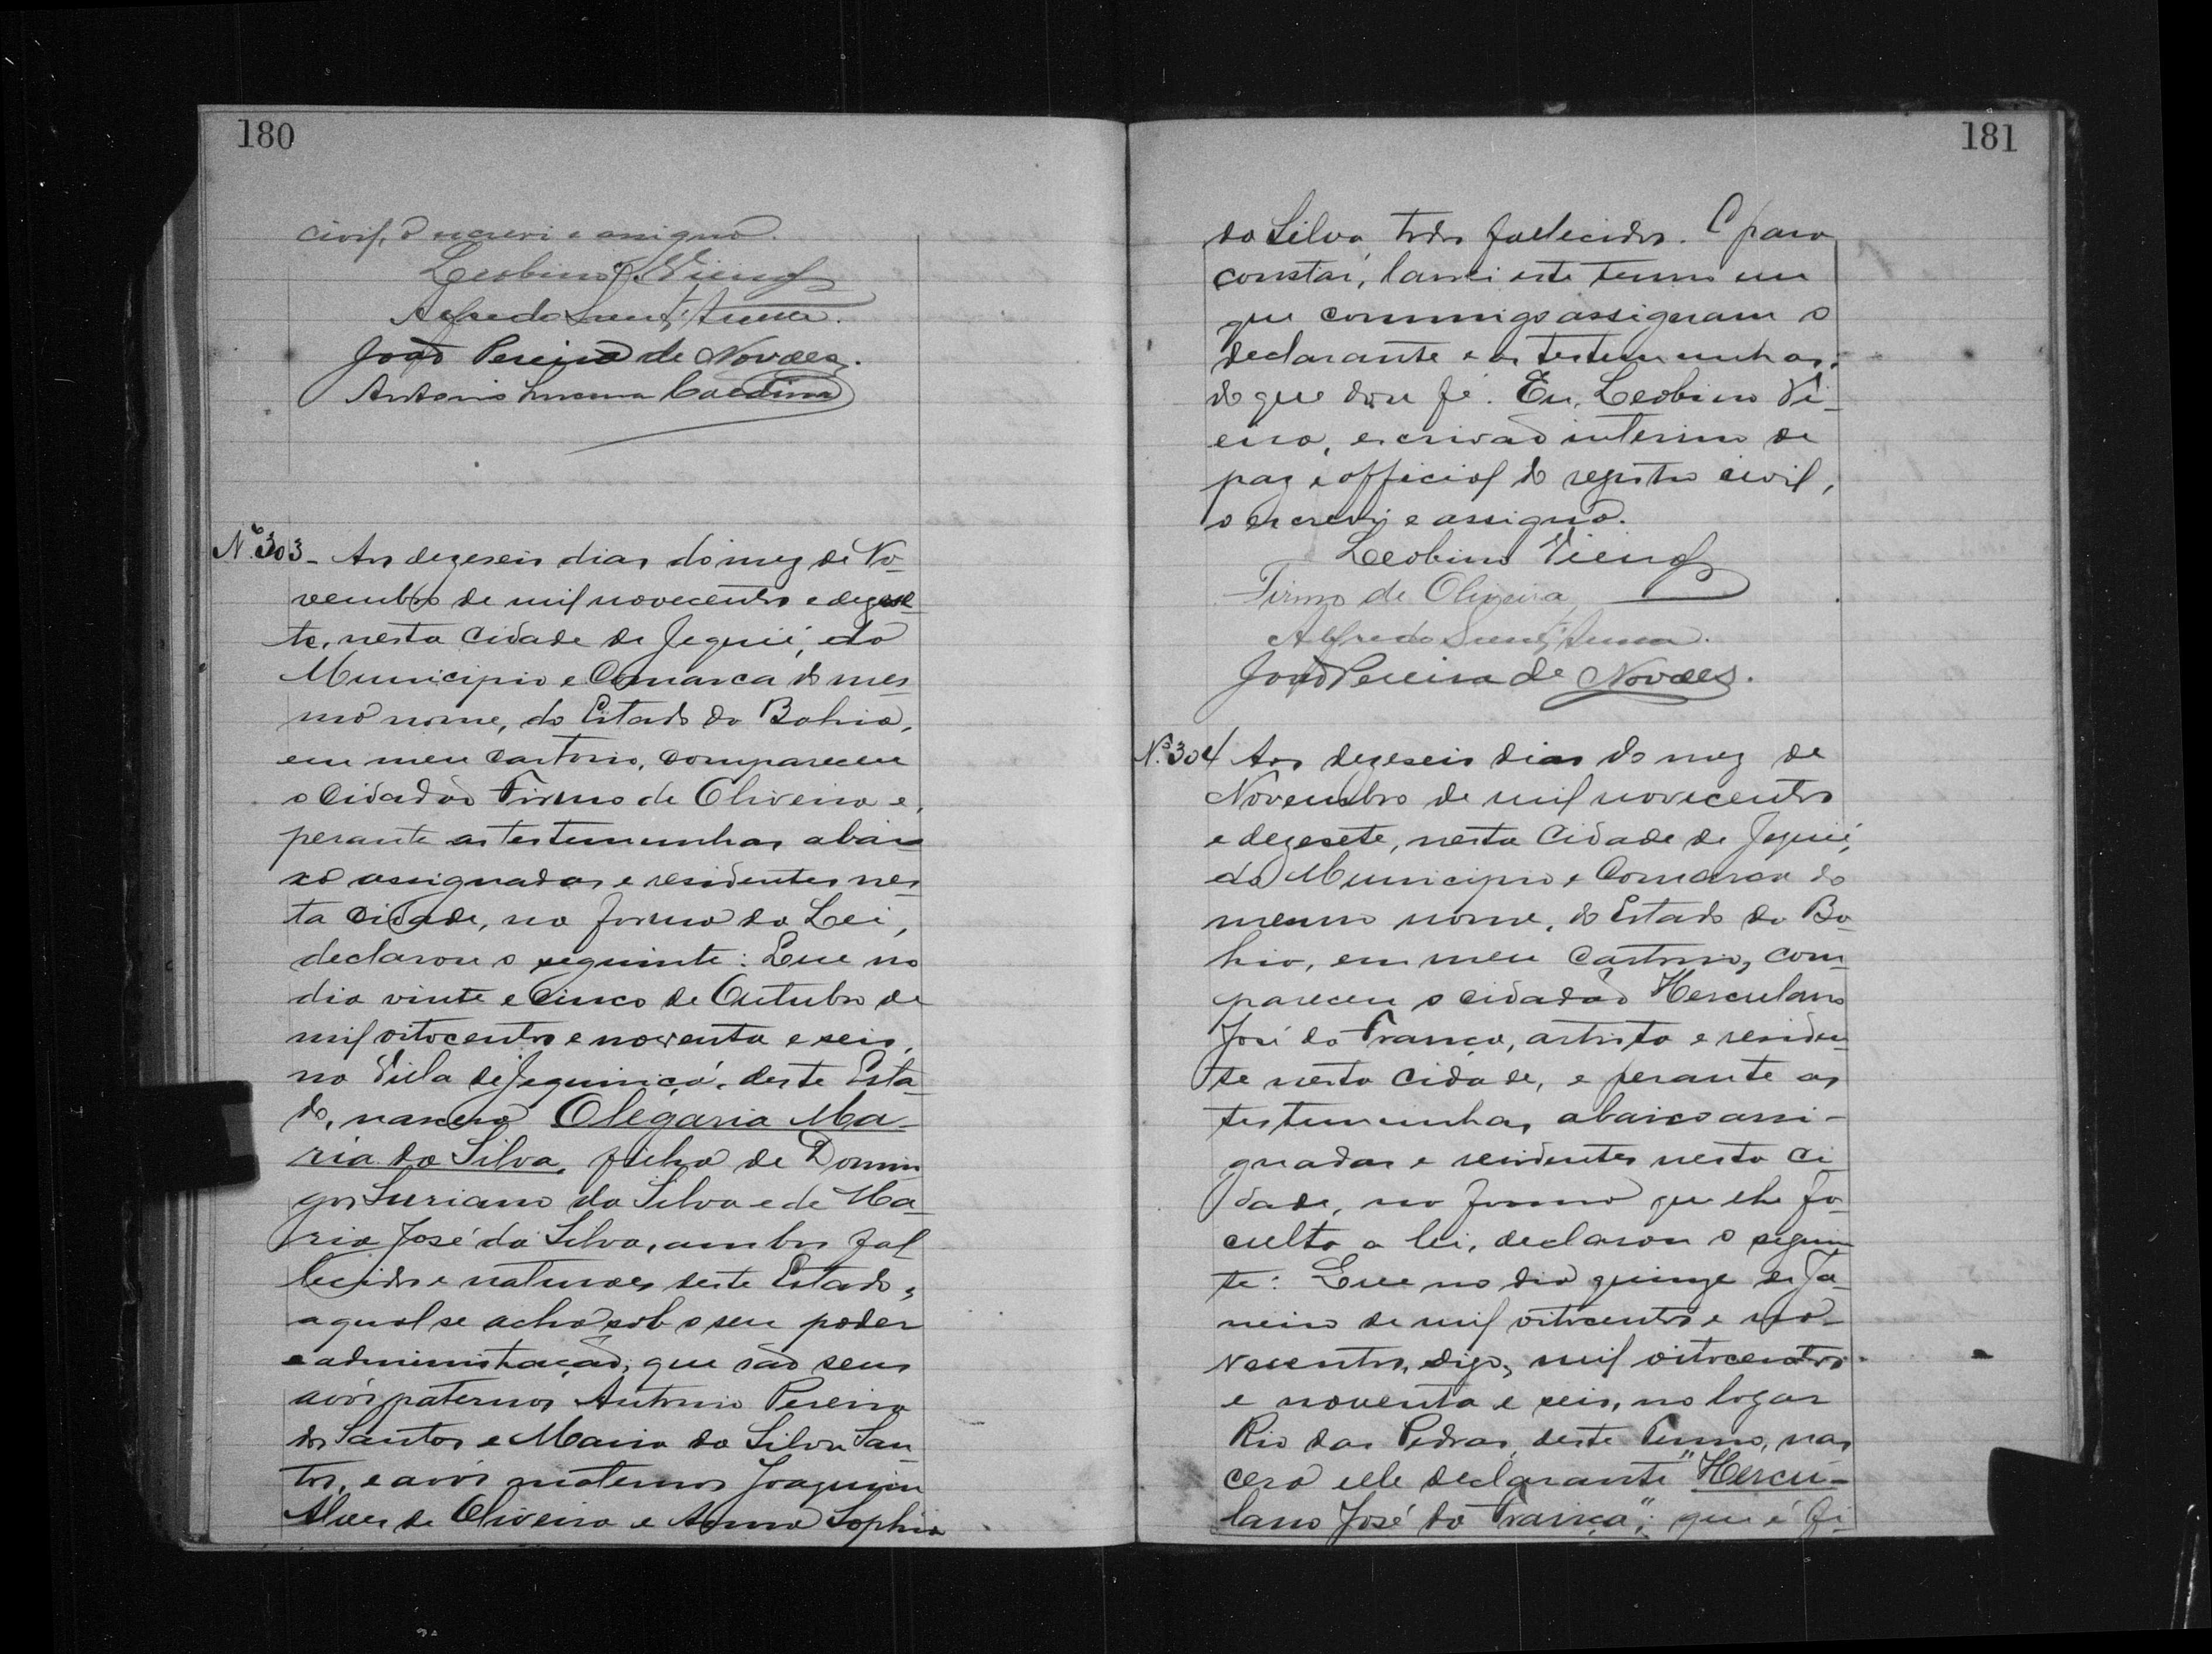 180
civil, o escrevi e assigno.
Leobino Vieira
Alfredo Sant'Anna.
João Pereira de Novaes.
Antonio Lucena
Nº 303 - Aos dezeseis dias do mez de No-
vembro de mil novecentos e dezese-
te, nesta Cidade de Jequié, do
Municipio e Comarca do mes-
mo nome, do Estado da Bahia,
em meu cartorio, compareceu
o Cidadão Firmo de Oliveira e,
perante as testemunhas abai-
xo assignadas e residentes nes-
ta cidade, na forma da Lei,
declarou o seguinte: Que no
dia vinte e cinco de Outubro de
mil oitocentos e noventa e seis,
na Villa de Jequiriçá, deste Esta-
do, nasceu Olegaria Ma-
ria da Silva, filha de Domin-
gos Suriano da Silva e de Ma-
ria José da Silva, ambos fal-
lecidos e naturaes deste Estado,
a qual se acha sob o seu poder
e administração; que são seus
avós paternos Antonio Pereira
dos Santos e Maria da Silva San-
tos, e avós maternos Joaquim
Alves de Oliveira e Anna Sophia
181
da Silva todos fallecidos. E para
constar, lancei este termo em
que commigo assignam o
declarante e as testemunhas,
do que dou fé. Eu, Leobino Vi-
eira, escrivão interino de
paz e official do registro civil,
o escrevi e assigno.
Leobino Vieira
Firmo de Oliveira
Alfredo Sant'Anna.
João Pereira de Novaes.
Nº 304 Aos dezeseis dias do mez de
Novembro de mil novecentos
e dezesete, nesta Cidade de Jequié,
do Municipio e Comarca do
mesmo nome, do Estado da Ba-
hia, em meu cartorio, com-
pareceu o cidadão Herculano
José da França, artista e residen-
te nesta cidade, e perante as
testemunhas abaixo assi-
gnadas e residentes nesta ci-
dade, na forma que lhe fa-
culta a lei, declarou o seguin-
te: Que no dia quinze de Ja-
neiro de mil oitocentos e no-
vecentos, digo, mil oitocentos
e noventa e seis, no logar
Rio das Pedras, deste Termo, nas-
cera elle declarante "Hercu-
lano José da França"; que é fi-